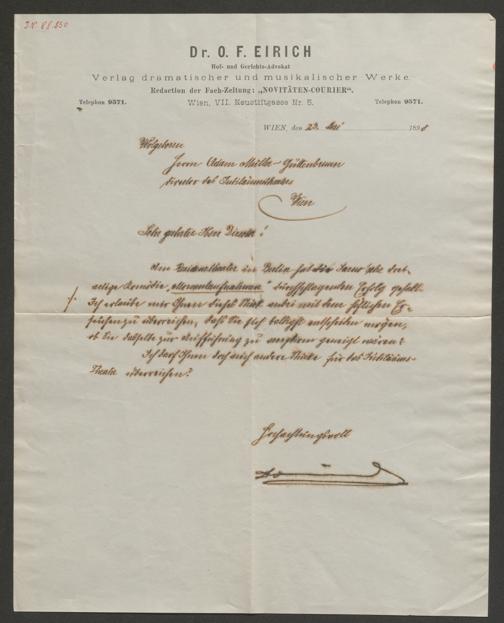 I.N. 88.830
Dr. O. F. EIRICH
Hof- und Gerichts-Advokat
Verlag dramatischer und musikalischer Werke.
Redaction der Fach-Zeitung: „NOVITÄTEN-COURIER“.
Telephon 9571. Wien, VII. Neustiftgasse Nr. 5. Telephon 9571.
WIEN, den 23. Mai 1898
Wolgeboren
Herrn Adam Müller-Guttenbrunn
Director des Jubiläumstheaters
Wien
Sehr geehrter Herr Director!
Am Residenztheater in Berlin hat die
Komödie „ “ durchschlagenden Erfolg gehabt.
Ich erlaube mir Ihnen dieses Stück mit dem höflichen Er-
suchen zu überreichen, daß Sie sich entscheiden mögen,
ob Sie dasselbe zur Aufführung zu geneigt wären?
Ich darf Ihnen doch auch andere Stücke für das Jubiläums-
Theater überreichen?
Hochachtungsvoll